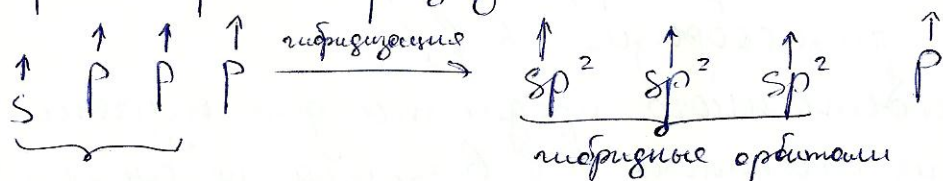 s p p p гибридизация sp² sp² sp² p
гибридные орбитали